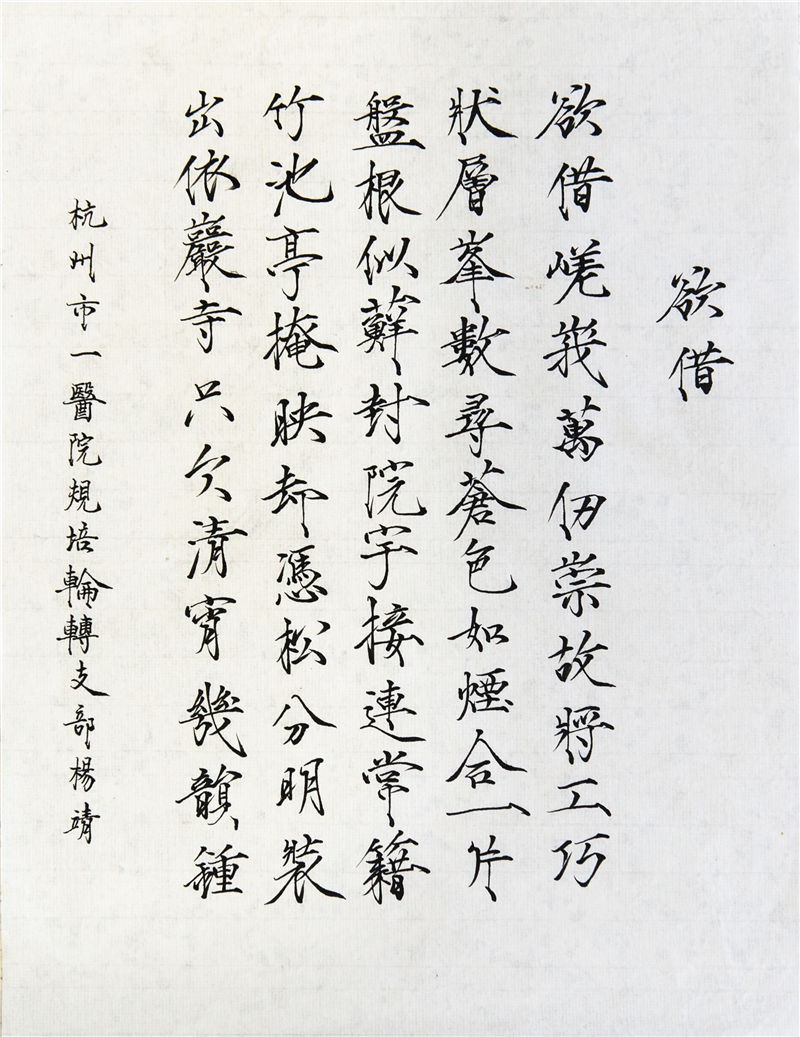 欲借
欲借嵯峩萬仞崇故將工巧
狀層峯數尋蒼色如煙合一片
盤根似蘚封院宇接連常籍
竹池亭掩映却憑松分明裝
出依巖寺只欠清宵幾韻鍾
杭州市一醫院規培輪轉支部楊靖